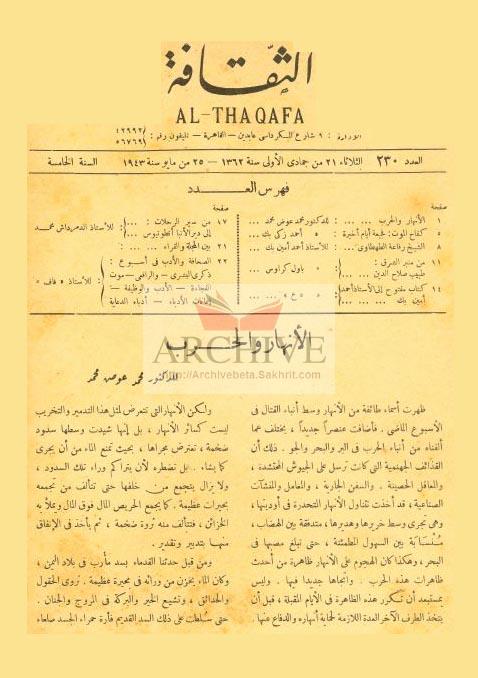 الثقافة
AL-THAQAFA
الادارة : ٩ شارع الكرداسى عابدين — القاهرة — تليفون رقم : ٤٢٩٩٢ ٥٦٧٦٩
العدد ٢٣٠ الثلاثاء ٢١ من جمادى الأولى سنة ١٣٦٢ — ٢٥ من مايو سنة ١٩٤٣ السنة الخامسة
فهرس العدد
صفحة
١ الأنهار والحرب ... ... : للدكتور محمد عوض محمد ...
٥ كفاح الموت : فجيعة أيام أخيرة : » أحمد زكى بك ...
٨ الشيخ رفاعة الطهطاوى ... : للأستاذ أحمد أمين بك ...
١١ من منبر الشرق :
طبيب صلاح الدين ... : » باول كراوس ...
١٤ كتاب مفتوح إلى الأستاذ أحمد
أمين بك ... ... ...
صفحة
١٧ من سير الرحلات : ...
إلى دير الأنبا أنطونيوس : للأستاذ الدمرداش محمد
٢١ بين المجلة والقراء ... ...
٢٢ الصحافة والأدب فى أسبوع :
ذكرى البشرى — والرافعى — موت
الفجاءة — الأدب والوظيفة —
إعانات الأدباء — أدباء الدعاية
للأستاذ « قاف »
ARCHIVE
http://Archivebeta.Sakhrit.com
الأنهار والحرب
للدكتور محمد عوض محمد
ظهرت أسماء طائفة من الأنهار وسط أنباء القتال فى
الأسبوع الماضى . فأضافت عنصراً جديداً ، يختلف عما
ألفناه من أنباء الحرب فى البر والبحر والجو . ذلك أن
القذائف الجهنمية التى كانت ترسل على الجيوش المحتشدة ،
والمعاقل الحصينة . والسفن الجارية ، والمعامل والمنشآت
الصناعية ، قد أخذت تتناول الأنهار المتحدرة فى أوديتها ،
وهى تجرى وسط خريرها وهديرها ، متدفقة بين الهضاب ،
مُنْسَابَة بين السهول المطمئنة ، حتى تبلغ مصبها فى
البحر ، وهكذا كان الهجوم على الأنهار ظاهرة من أحدث
ظاهرات هذه الحرب . واتجاها جديدا فيها . وليس
بمستبعد أن تتكرر هذه الظاهرة فى الأيام المقبلة ، قبل أن
يتخذ الطرف الآخر العدة اللازمة لحماية أنهاره والدفاع عنها .
ولكن الأنهار التى تتعرض لمثل هذا التدمير والتخريب
ليست كسائر الأنهار ، بل إنها شيدت وسطها سدود
ضخمة ، تعترض مجراها ، بحيث تمنع الماء من أن يجرى
كما يشاء .. بل تضطره لأن يتراكم وراء تلك السدود ،
ولا يزال يتجمع من خلفها حتى تتألف من تجمعه
بحيرات عظيمة . كما يجمع الحريص المال فوق المال ويملأ به
الخزائن ، فتتألف منه ثروة ضخمة ، ثم يأخذ فى الإنفاق
منها بتدبير وتقدير .
ومن قبل حدثنا القدماء بسد مأرب فى بلاد اليمن ،
وكان الماء يخزن من ورائه فى بحيرة عظيمة . تروى الحقول
والحدائق ، وتشيع الخير والبركة فى المروج والجنان .
حتى سُلطت على ذلك السد القديم فأرة حمراء الجسد صلعاء